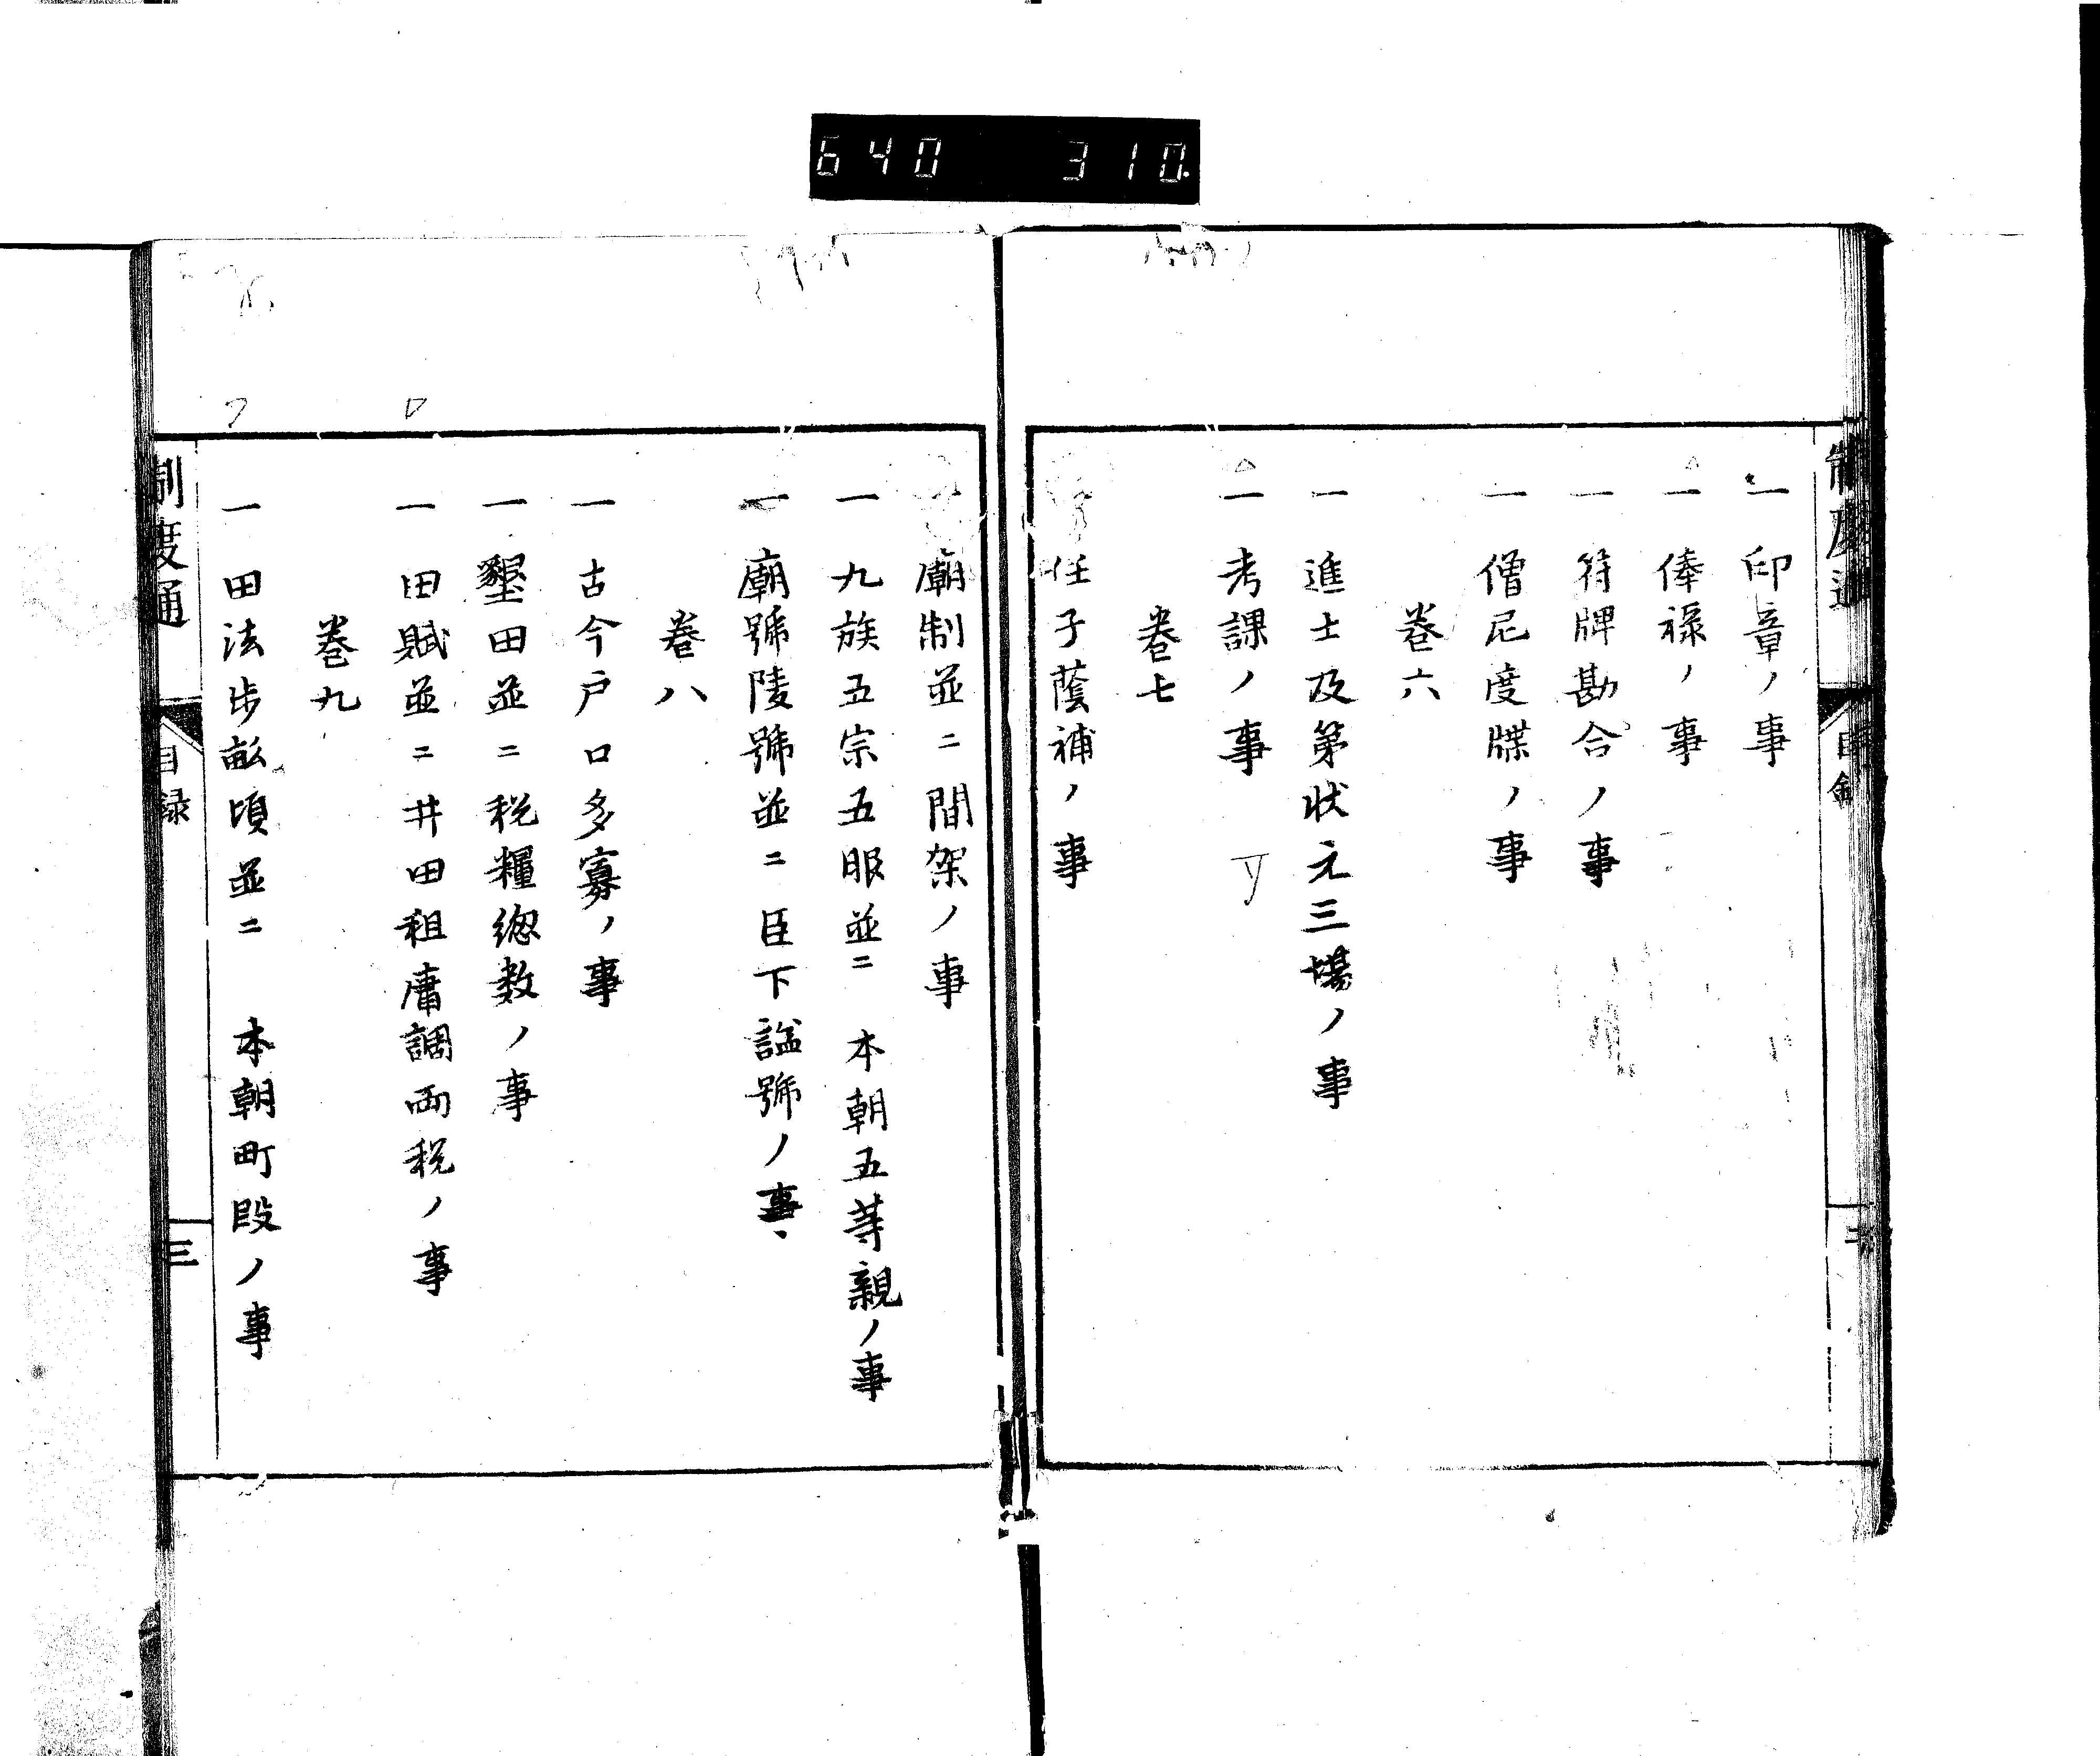 640 310.
制度通 目録
一 印章ノ事
一 俸禄ノ事
一 符牌勘合ノ事
一 僧尼度牒ノ事
巻六
一 進士及第状元三場ノ事
一 考課ノ事
巻七
任子蔭補ノ事
廟制並ニ間架ノ事
一 九族五宗五服並ニ 本朝五等親ノ事
一 廟號陵號並ニ臣下諡號ノ事
巻八
一 古今戸口多寡ノ事
一 墾田並ニ税糧總数ノ事
一 田賦並ニ井田租庸調両税ノ事
巻九
一 田法歩畝頃並ニ 本朝町段ノ事
制度通 目録 三